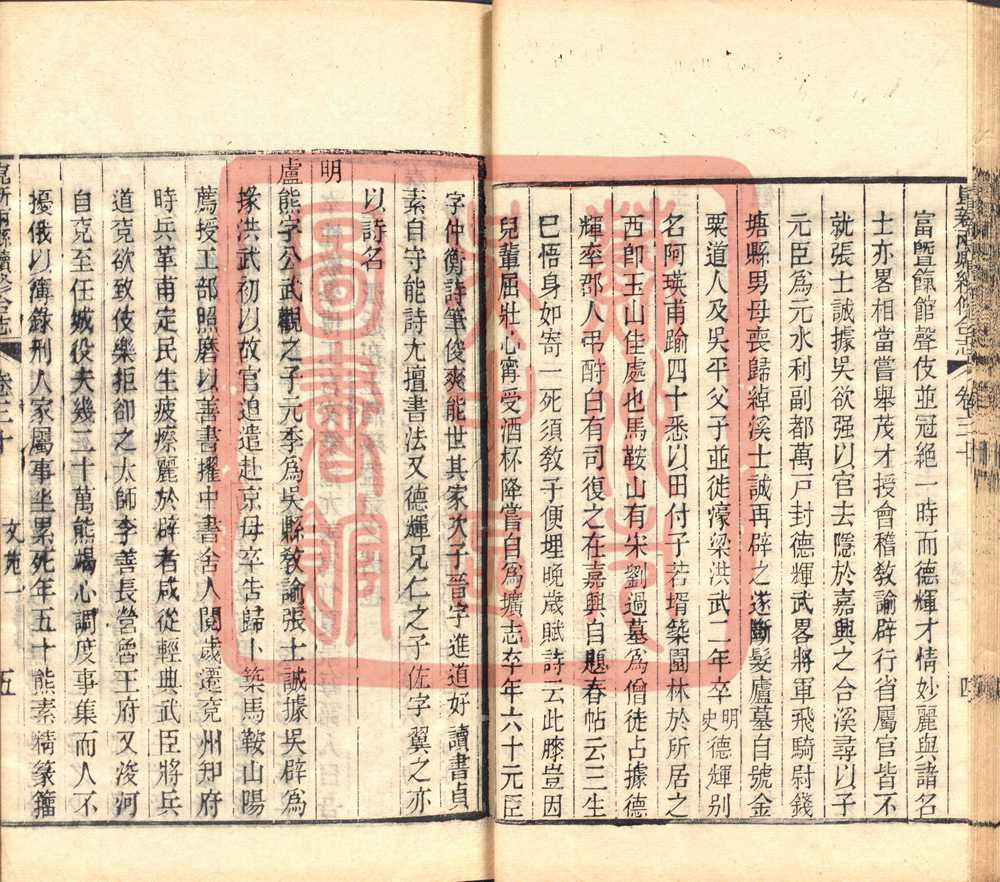 富暨餼館聲伎並冠絕一時而德輝才情妙麗與諸名
士亦畧相當嘗舉茂才授會稽敎諭辟行省屬官皆不
就張士誠據吳欲强以官去隱於嘉興之合溪尋以子
元臣爲元水利副都萬戸封德輝武畧將軍飛騎尉錢
塘縣男母喪歸綽溪士誠再辟之遂斷髮廬墓自號金
粟道人及吳平父子並徙濠梁洪武二年卒明史德輝别
名阿瑛甫踰四十悉以田付子若壻築園林於所居之
西卽玉山佳處也馬鞍山有宋劉過墓爲僧徒占據德
輝率郡人弔酹白有司復之在嘉興自題春帖云三生
已悟身如寄一死須敎子便埋晚歲賦詩云此滕豈因
兒輩屈壯心甯受酒杯降嘗自爲壙志卒年六十元臣
四
字仲衡詩筆俊爽能世其家次子晉字進道好讀書貞
素自守能詩尤擅書法又德輝兄仁之子佐字翼之亦
以詩名
明
盧熊字公武觀之子元季爲吳縣敎諭張士誠據吳辟爲
掾洪武初以故官迫遣赴京母卒吿歸卜築馬鞍山陽
薦授工部照磨以善書擢中書舍人閱歲遷兗州知府
時兵革甫定民生疲瘵麗於辟者咸從輕典武臣將兵
道兗欲致伎樂拒卻之太師李善長營魯王府又浚河
自兗至任城役夫幾三十萬熊竭心調度事集而人不
擾俄以簿錄刑人家屬事坐累死年五十熊素精篆籀
昆新兩縣續修合志 卷三十 文苑一 五